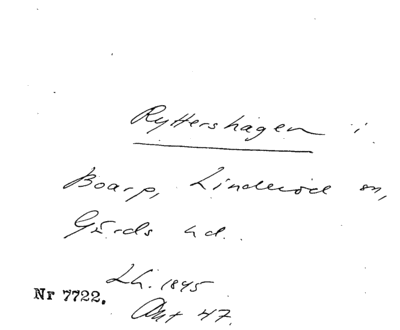 Ryttershagen i
Boarp, Linderöd sn,
Gärds hd.
Lh. 1845
Nr 7722.
Akt 47.